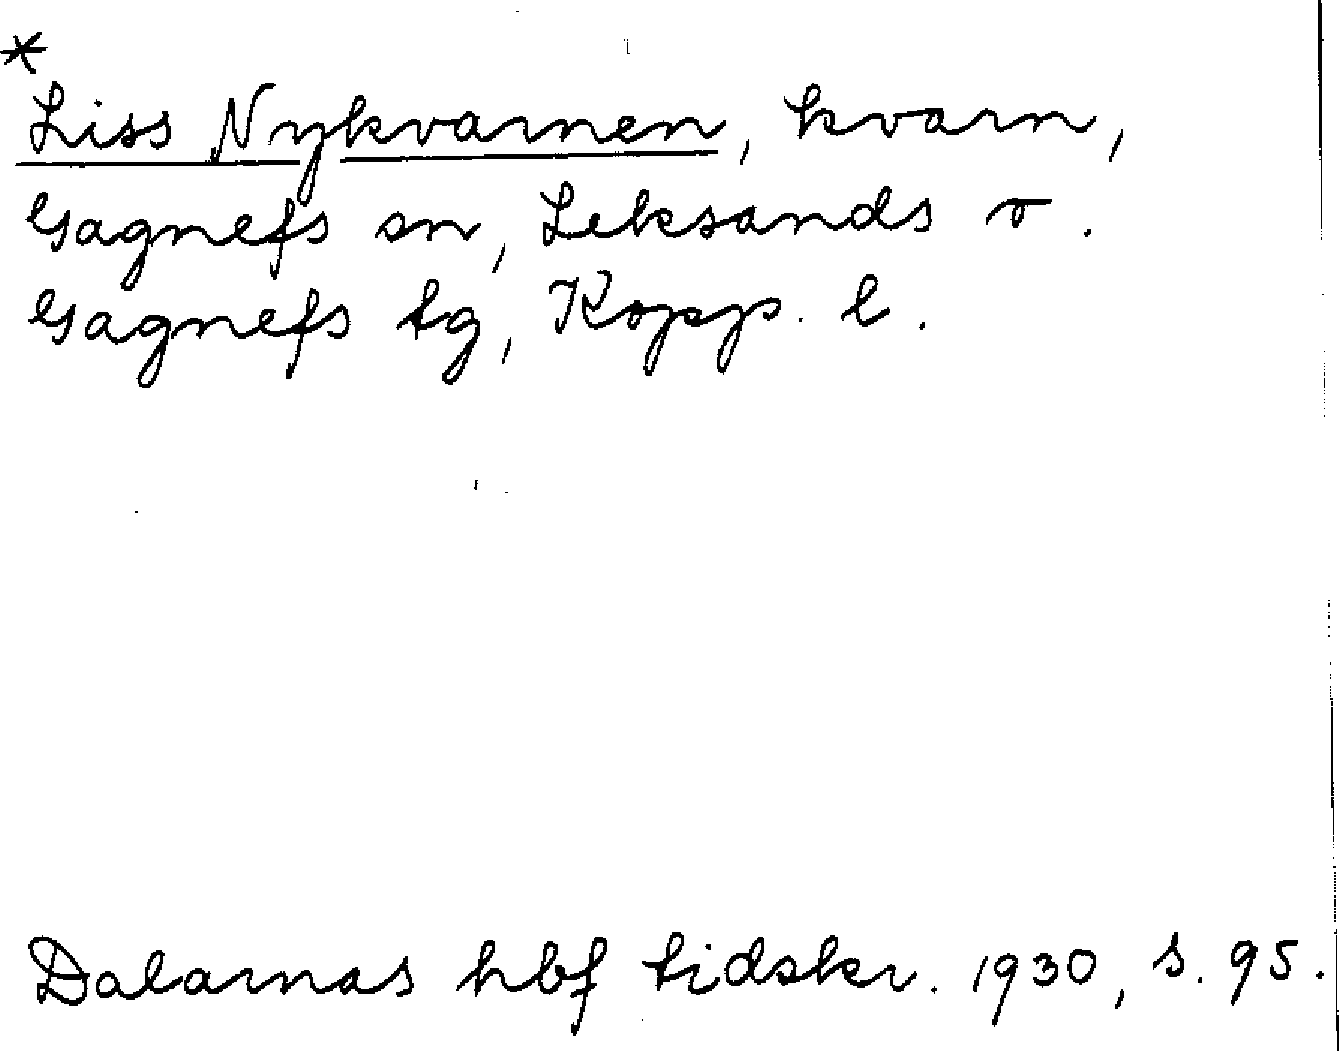 *
Liss Nykvarnen, kvarn,
Gagnefs sn, Leksands o.
Gagnefs tg, Kopp. l.
Dalarnas hbf tidskr. 1930, s. 95.